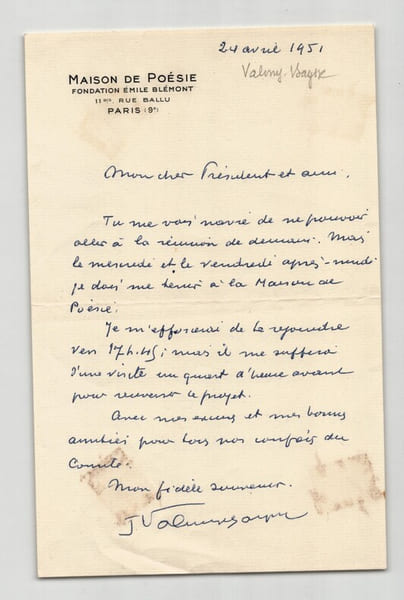 24 avril 1951
Valmy-Baysse
MAISON DE POÉSIE
FONDATION ÉMILE BLÉMONT
11 BIS, RUE BALLU
PARIS (9e)
Mon cher Président et ami,
Tu me vois navré de ne pouvoir
aller à la réunion de demain. Mais
le mercredi et le vendredi après-midi
je dois me tenir à la Maison de
Poésie.
Je m'efforcerai de te rejoindre
vers 17h.45; mais il me suffirai
d'une visite un quart d'heure avant
pour renverser le projet.
Avec mes excuses et mes bonnes
amitiés pour tous nos confrères du
Comité.
Mon fidèle souvenir.
J Valmy-Baysse